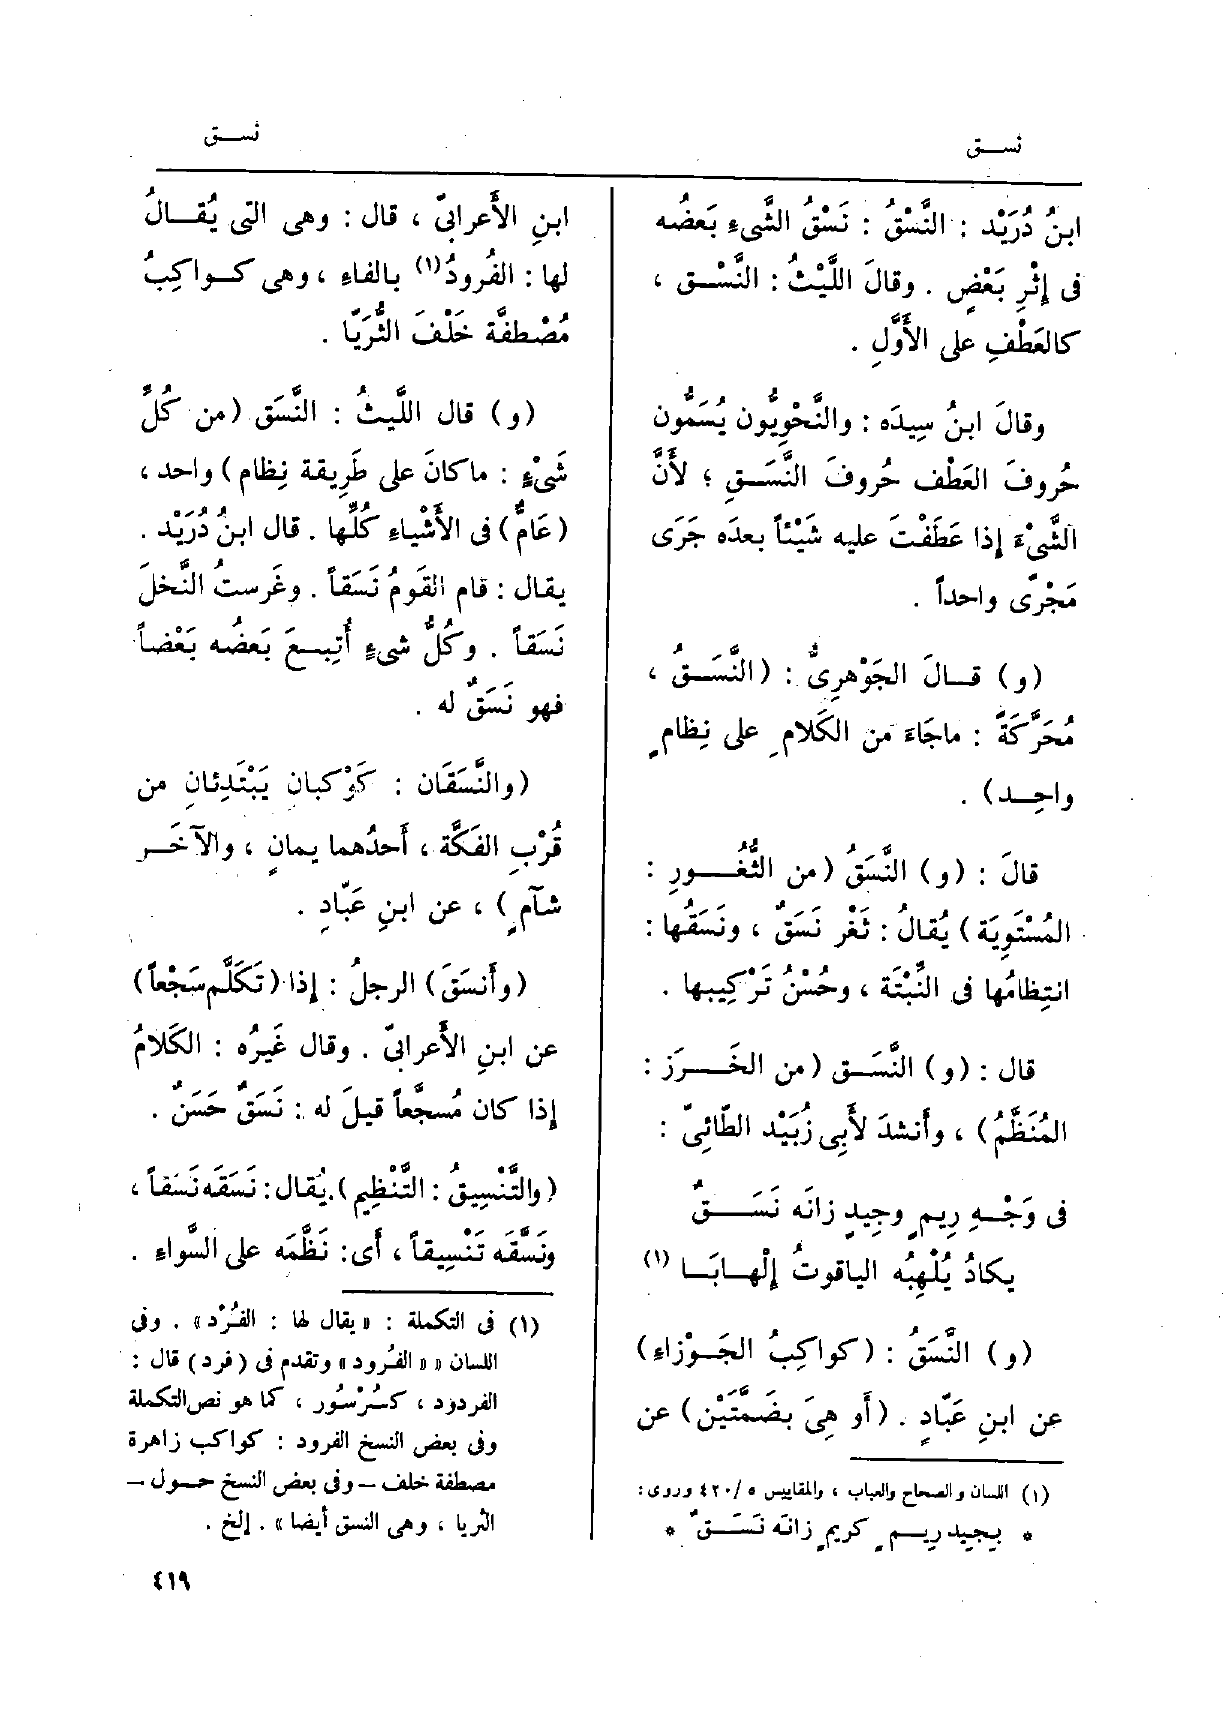 نسـق
نسـق
ابنُ دُرَيْد : النَّسْقُ : نَسْقُ الشَّىءِ بَعضُه
فى إِثْرِ بَعْضٍ . وقالَ اللَّيْثُ : النَّسْـق ،
كالعَطْفِ على الأَوَّلِ .
وقالَ ابنُ سِيدَه : والنَّحْوِيُّون يُسَمُّون
حُروفَ العَطْف حُروفَ النَّسَـقِ ؛ لأَنَّ
الشَّىْءَ إذا عَطَفْتَ عليه شَيْئاً بعدَه جَرَى
مَجْرًى واحداً .
(و) قـالَ الجَوْهرِىُّ : (النَّسَـقُ ،
مُحَرَّكَةً : ماجَاءَ من الكَلامِ على نِظامٍ
واحِـد) .
قالَ : (و) النَّسَقُ (من الثُّغُـــورِ :
المُسْتَوِيَة) يُقالُ : ثَغْر نَسَقٌ ، ونَسَقُها :
انتِظامُها فى النِّبْتَة ، وحُسْنُ تَرْكِيبها .
قال : (و) النَّسَـق (من الخَـــرَز :
المُنَظَّمُ) ، وأَنشدَ لأَبِى زُبَيْد الطّائِىّ :
فى وَجْـهِ رِيمٍ وجِيدٍ زانَه نَسَــــقٌ
يكادُ يُلْهِبُه الياقوتُ إِلْهـابَـا (١)
(و) النَّسَقُ : (كواكِبُ الجَـوْزاءِ)
عن ابنِ عَبّادٍ . (أَو هِىَ بضَمَّتَيْن) عن
(١) اللسان والصحاح والعباب ، والمقاييس ٥/٤٢٠ وروى :
* بِجِيد رِيـمٍ كريمٍ زانَه نَسَـقٌ *
ابنِ الأَعرابىّ ، قال : وهى التى يُقــالُ
لها : الفُرودُ(١) بالفاءِ ، وهى كـواكِبُ
مُصْطفَّة خَلْفَ الثُّرَيّا .
(و) قال اللَّيثُ : النَّسَق (من كُلِّ
شَىْءٍ : ماكانَ على طَرِيقة نِظام) واحد ،
(عَامٌّ) فى الأَشْياءِ كُلِّها . قال ابنُ دُرَيْد .
يقال : قام القَومُ نَسَقاً . وغَرستُ النَّخلَ
نَسَقاً . وكُلُّ شىءٍ أُتبِـعَ بَعضُه بَعْضاً
فهو نَسَقٌ له .
(والنَّسَقَان : كَوْكبان يَبْتَدِئانِ من
قُرْبِ الفَكَّة ، أَحدُهما يمانٍ ، والآخَــر
شآمٍ) ، عن ابنِ عَبّادِ .
(وأَنسَقَ) الرجلُ : إذا (تَكَلَّم سَجْعاً)
عن ابنِ الأَعرابىّ . وقال غَيرُه : الكَلامُ
إذا كان مُسجَّعاً قيلَ له : نَسَقٌ حَسَنٌ .
(والتَّنْسِيقُ : التَّنْظِيم). يُقال : نَسَقَه نَسَقاً ،
ونَسَّقَه تَنْسِيقاً ، أَى : نَظَّمَه على السَّواءِ .
(١) فى التكملة : «يقال لها : الفُرْد» . وفى
اللسان « «الفُرود» وتقدم فى (فرد) قال :
الفردود ، كـسُرْسُور ، كما هو نص التكملة
وفى بعض النسخ الفرود : كواكب زاهرة
مصطفة خلف – وفى بعض النسخ حـول –
الثريا ، وهى النسق أيضا» . إلخ .
٤١٩